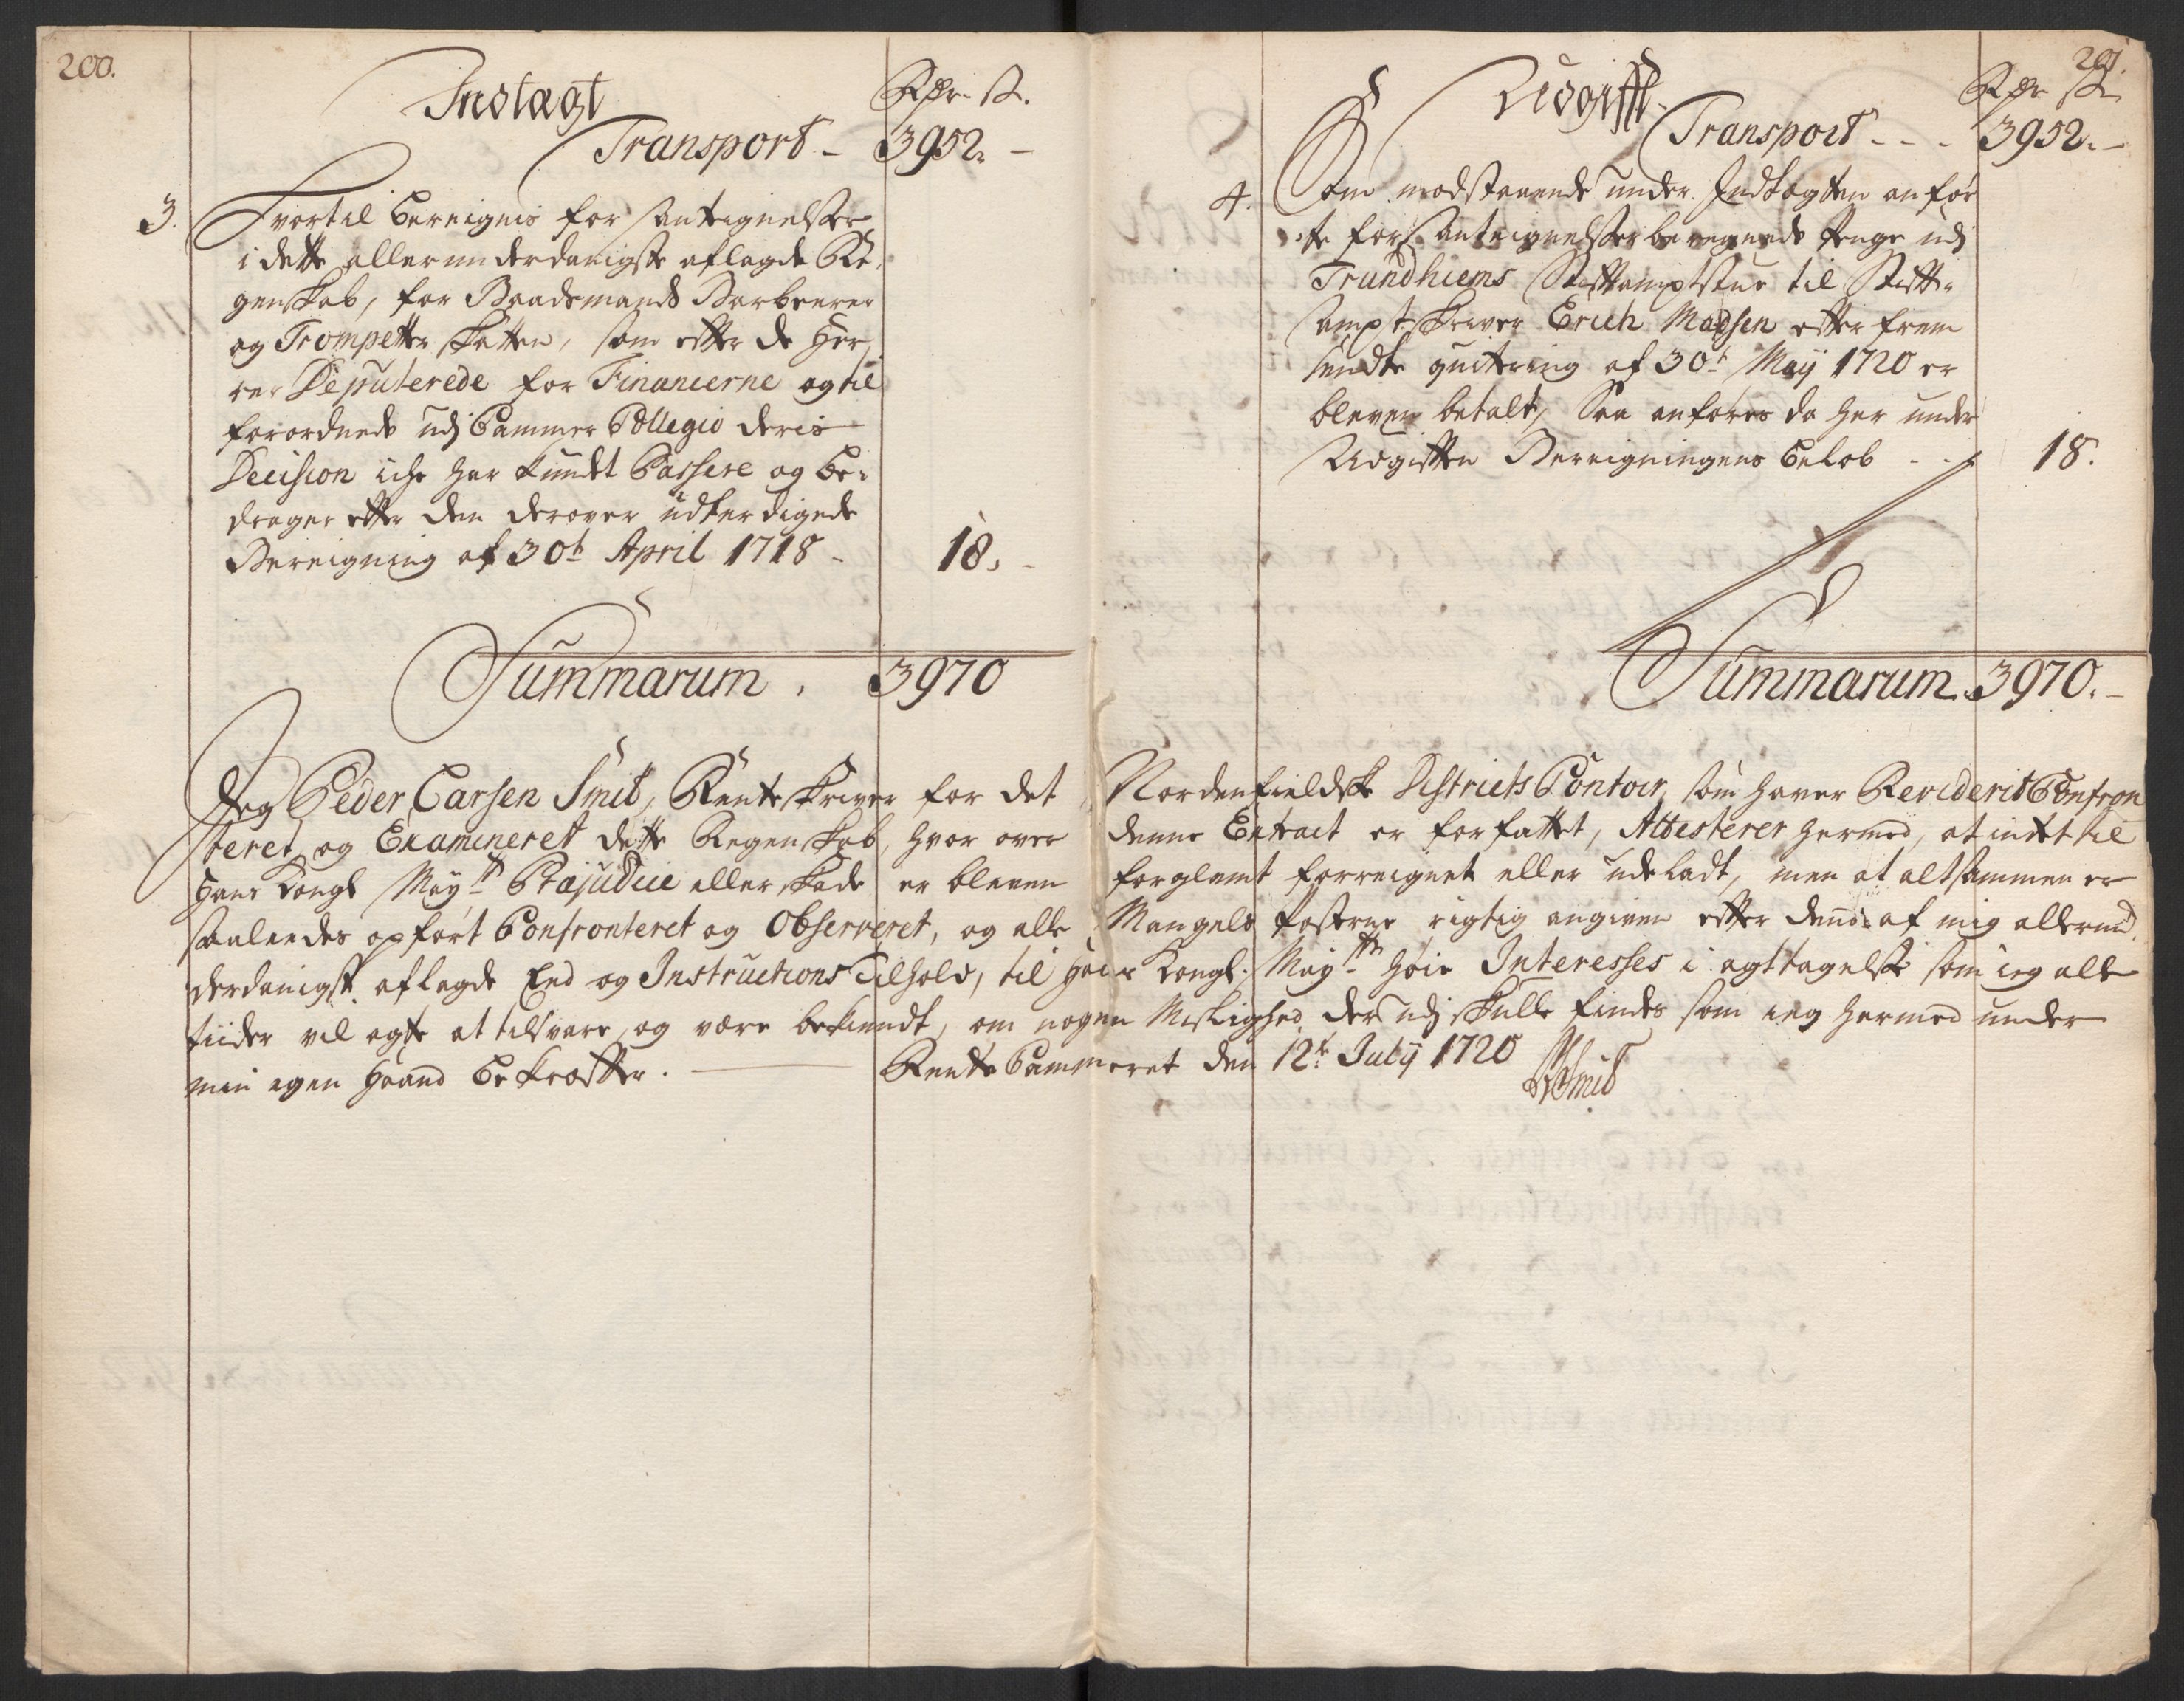 200.
Indtægt
Rdr. ß.
Transport - 3952. -
3. Hvortil bereignis for Antegnelser
i dette allerunderdanigste aflagde Re-
genskab, for Baadsmands Barbeerer
og Trompetter skatten, som efter de Her,
rer Deputerede for Financierne og til
forordnede udj Cammer Collegio deris
Decision iche har kundt Passere og be-
drager efter den derover udferdigede
Bereigning af 30t April 1718 - 18. -
Summarum . 3970
201.
Udgifft
Rdr ß
Transport - - - 3952. -
4. Som modstaaende under Indtægten anför
te for Anteignelser beregnede penge udj
Trundhiems Stiftamptstue til Stift-
ampt skriver Erich Madsen efter frem
sendte quitering af 30t Maij 1720 er
bleven betalt, Saa anföres da her under
Udgiften Bereigningens belöb - - 18.
Summarum . 3970. -
Jeg Peder Larsen Smit, Rente skriver for det Nordenfieldske Districts Contoir, som haver Reviderit Confron
teret og Examineret dette Regenskab, hvor over denne Extract er forfattet, Attesterer hermed, at intet til
Hans Kongl Maytz Præjudice eller skade er bleven forglemt forreignet eller udeladt, men at altsammen er
saaledes opfört Confronteret og Observeret, og alle Mangels posterne rigtig angiven efter den af mig allerund
derdanigst aflagde Eed og Instructions Tilhold, til Hans Kongl. Maytz höie Interesses i agttagelse som jeg alle
tiider vil agte at tilsvare, og være bekiendt, om nogen Mislighed der udj skulle findes som jeg hermed under
min egen Haand bekræfter. Rente Cammeret den 12t July 1720
PLSmit